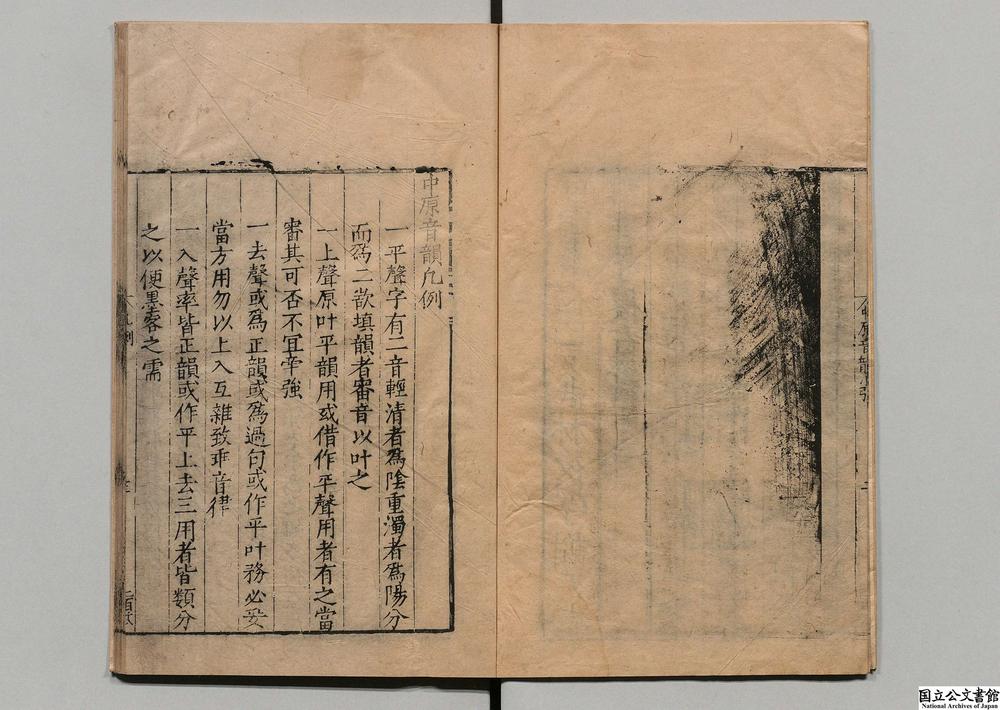 中原音韻凡例
一平聲字有二音輕清者爲陰重濁者爲陽分
而爲二欲填韻者審音以叶之
一上聲原叶平韻用或借作平聲用者有之當
審其可否不宜牽強
一去聲或爲正韻或爲過句或作平叶務必妥
當方用勿以上入互雜致乖音律
一入聲率皆正韻或作平上去三用者皆類分
之以便墨客之需
国立公文書館
National Archives of Japan